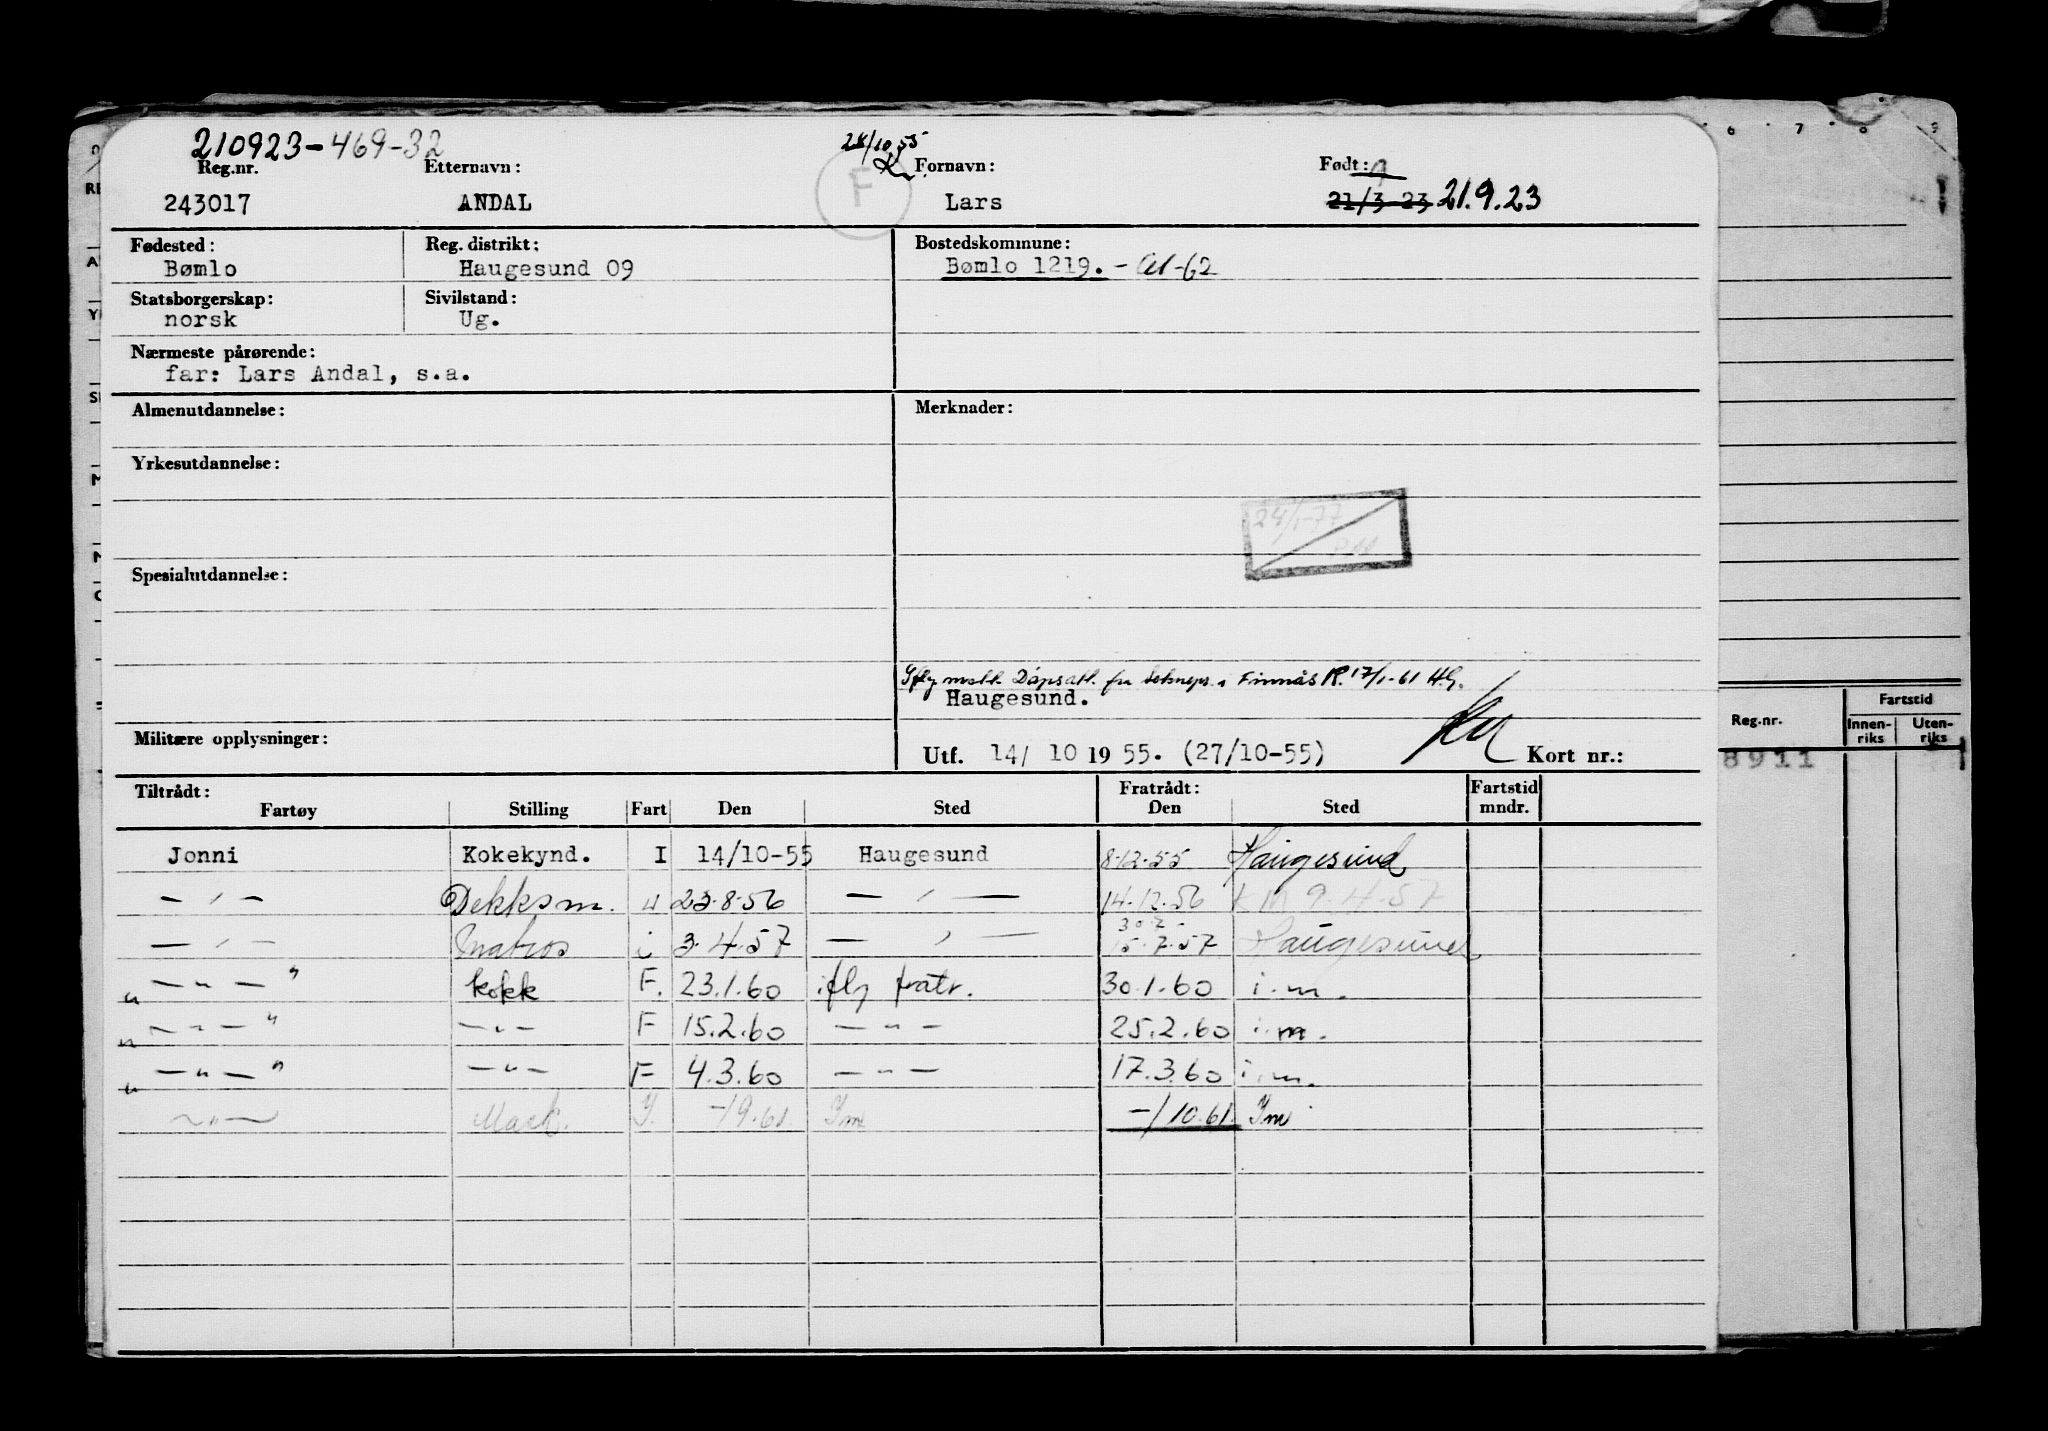 210923-469-32
28/10 55
Reg.nr. Etternavn: Fornavn: Født: 9
243017 ANDAL F Lars 21/3-23 21.9.23
Fødested: Reg. distrikt: Bostedskommune:
Bømlo Haugesund 09 Bømlo 1219. -62
Statsborgerskap: Sivilstand:
norsk Ug.
Nærmeste pårørende:
far: Lars Andal, s.a.
Almenutdannelse: Merknader:
Yrkesutdannelse:
24/1-77
Spesialutdannelse:
Iflg. Dåpsatt. fra Finnås 17/1-61 H.G.
Haugesund.
Militære opplysninger: Utf. 14/ 10 19 55. (27/10-55) Kort nr.:
Tiltrådt: Fratrådt: Fartstid
Fartøy Stilling Fart Den Sted Den Sted mndr.
Jonni Kokekynd. I 14/10-55 Haugesund 8.12.55 Haugesund
— " — Dekksm. u 23.8.56 — " — 14.12.56 9.4.57
30.7
— " — Matros i 3.4.57 — " — 15.7.57 Haugesund
" — " — " kokk F. 23.1.60 iflg fratr. 30.1.60 i.m.
" — " — " — " — F 15.2.60 — " — 25.2.60 i.m.
" — " — " — " — F 4.3.60 — " — 17.3.60 i.m.
— " — I. -/9.61 Im -/10.61. Im
6 7 8 9
Reg.nr. Fartstid
Innen-riks Uten-riks
8911